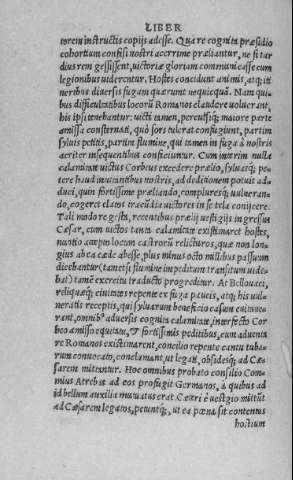 LIBER
torem instructis copijs adesse. Quare cognita præsidio
cohortium confisi nostri acerrime præliantur, ne si tar
dius rem gessissent, uictoriæ gloriam communicasse cum
legionibus uiderentur. Hostes concidunt animis, atq; iti
neribus diuersis fugam quærunt nequicquā. Nam quibus
difficultatibus locorū Romanos claudere uoluerant,
his ipsi tenebantur: uicti tamen, perculsiq; maiore parte
amissa consternati, quò fors tulerat confugiunt, partim
syluis petitis, partim flumine, qui tamen in fuga à nostris
acriter insequentibus conficiuntur. Cum interim nulla
calamitate uictus Corbeus excedere prælio, syluasq; pe
tere haud inuitantibus nostris, ad deditionem potuit ad
duci, quin fortissime præliando, compluresq; uulneran
do, cogeret elatos iracūdia uictores in se tela conijcere.
Tali modo re gesta, recentibus prælij uestigijs ingressus
Cæsar, cum uictos tanta calamitate existimaret hostes,
nuntio accepto locum castrorū relicturos, quæ non lon
gius ab ea cæde abesse, plus minus octo millibus passuum
dicebantur (tametsi flumine impeditam transitum uide
bat) tamē exercitu traducto progreditur. At Bellouaci,
reliquæq; ciuitates repente ex fuga paucis, atq; his uul
neratis receptis, qui syluarum beneficio casum euitaue
rant, omnib⁹ aduersis cognita calamitate, interfecto Cor
beo amisso equitatu, & fortissimis peditibus, cum aduenta
re Romanos existimarent, concilio repente cantu tubarum
conuocato, conclamant, ut legati, obsidesq; ad Cæ
sarem mittantur. Hoc omnibus probato consilio Com
mius Atrebas ad eos profugit Germanos, à quibus ad
id bellum auxilia mutuatus erat. Cæteri è uestigio mittūt
ad Cæsarem legatos, petuntq;, ut ea pœna sit contentus
hostium